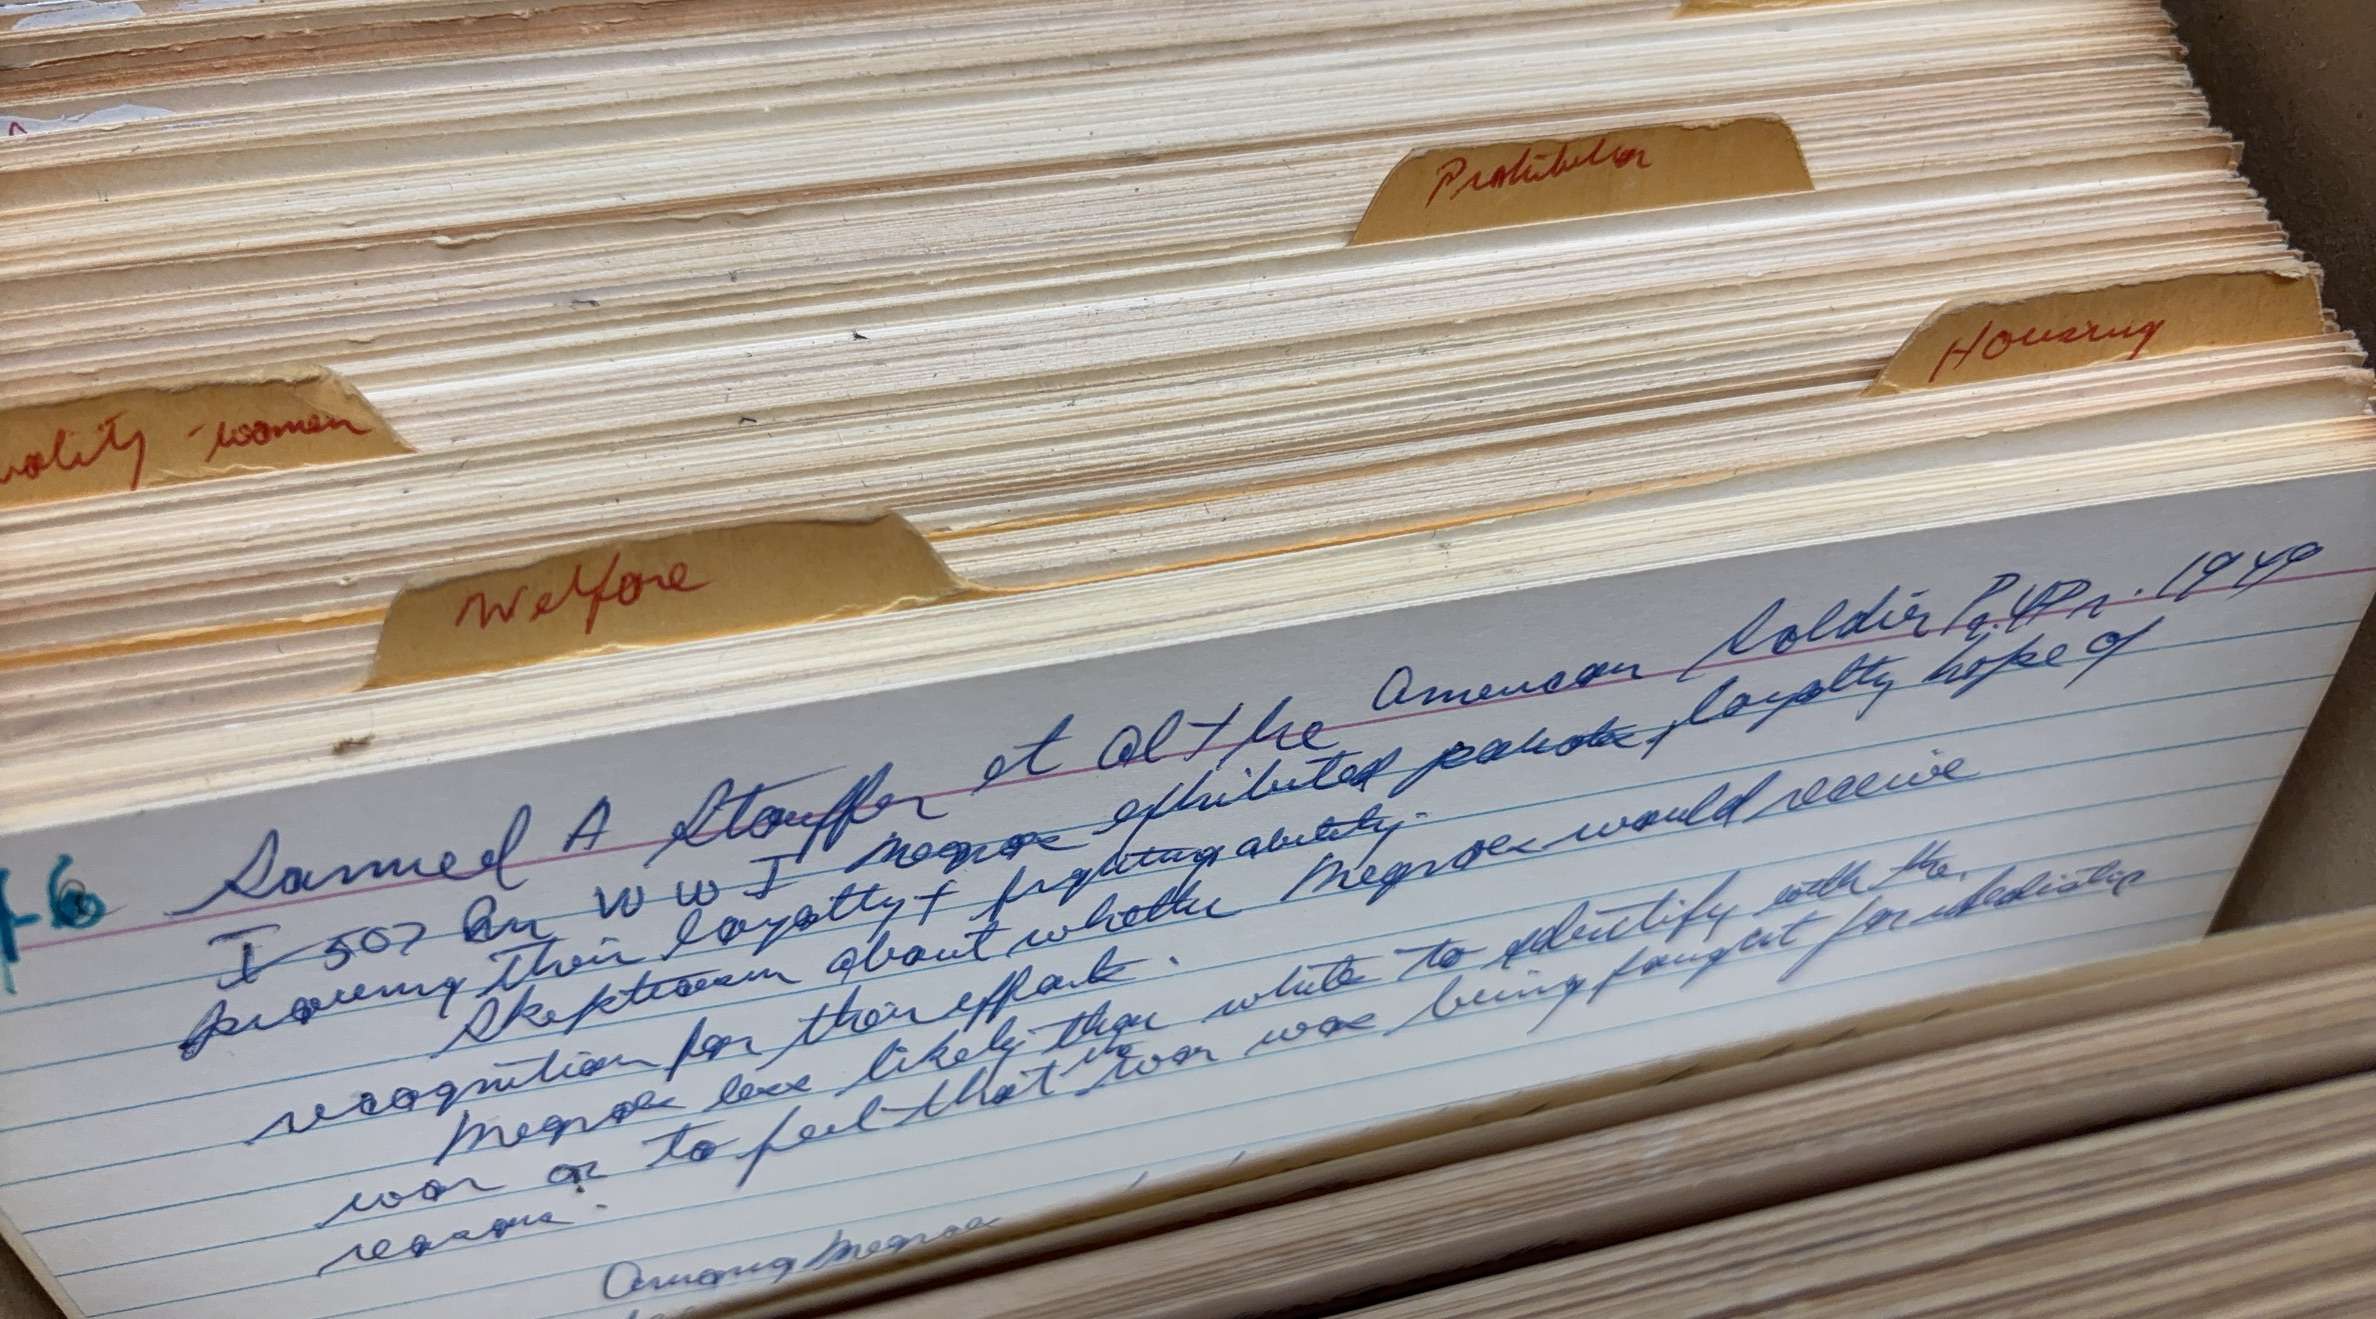 Prohibition
Housing
uality - women
Welfare
Samuel A Stouffer et al The American Soldier Pr. UPr. 1949
I 507 In WW I Negroes exhibited patriotic, loyalty hope of
proving their loyalty + fighting ability.
Skepticism about whether Negroes would receive
recognition for their efforts.
Negroes less likely than whites to identify with the
war or to feel that the war was being fought for idealistic
reasons.
Among Negroes